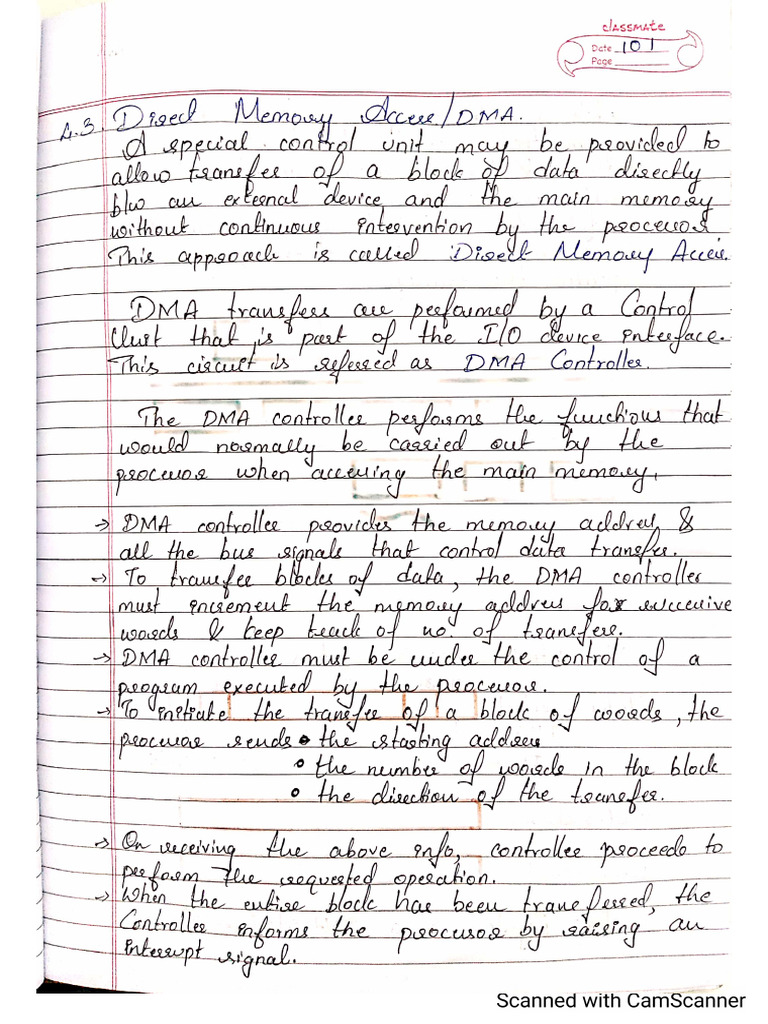 classmate
Date 101
Page
4.3. Direct Memory Access/DMA.
A special control unit may be provided to
allow transfer of a block of data directly
b/w an external device and the main memory
without continuous intervention by the processor
This approach is called Direct Memory Access.
DMA transfers are performed by a Control
that is part of the I/O device interface.
This circuit is referred as DMA Controller.
The DMA controller performs the functions that
would normally be carried out by the
processor when accessing the main memory.
→ DMA controller provides the memory address &
all the bus signals that control data transfer.
→ To transfer blocks of data, the DMA controller
must increment the memory address for successive
words & keep track of no. of transfers.
→ DMA controller must be under the control of a
program executed by the processor.
→ To initiate the transfer of a block of words, the
processor sends • the starting address
• the number of words in the block
• the direction of the transfer.
→ On receiving the above info, controller proceeds to
perform the requested operation.
→ When the entire block has been transferred, the
Controller informs the processor by raising an
interrupt signal.
Scanned with CamScanner